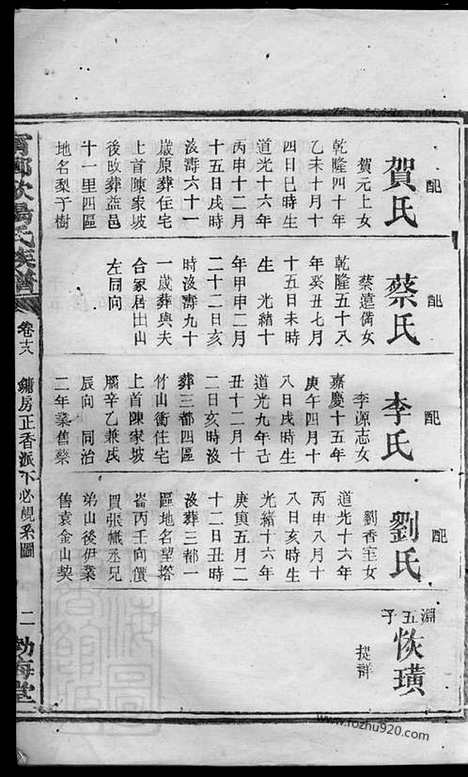 配
賀氏
賀元上女
乾隆四十年
乙未十月十
四日巳時生
道光十六年
丙申十二月
十五日戌時
沒壽六十一
歲原葬住宅
上首陳家坡
後改葬益邑
十一里四區
地名梨子樹
配
蔡氏
蔡蓮儕女
乾隆五十八
年癸丑七月
十五日未時
生 光緒十
年甲申二月
二十二日亥
時沒壽九十
一歲葬與夫
合冢居出山
左同向
配
李氏
李源志女
嘉慶十五年
庚午四月十
八日戌時生
道光九年己
丑十二月十
二日亥時沒
葬三都四區
竹山衝住宅
上首陳家坡
腦辛乙兼戌
辰向 同治
二年業舊蔡
配
劉氏
劉香室女
道光十六年
丙申八月十
八日亥時生
光緒十六年
庚寅五月二
十二日丑時
沒葬三都一
區地名望塔
崙丙壬向價
買張幟丞兄
弟山後伊業
售袁金山契
淵五子
恢璜
提祥
氏族譜
卷十八
鏞房正香派下必 系圖
二
勃海堂
www.fozhu920.com